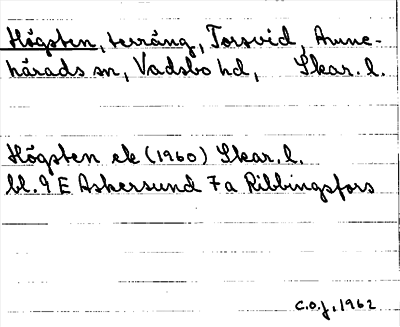 Högsten, terräng, Torsvid, Amne-
härads sn, Vadsbo hd, Skar. l.
Högsten ek (1960) Skar. l.
bl. 9 E Askersund 7a Ribbingsfors
C.O.J., 1962